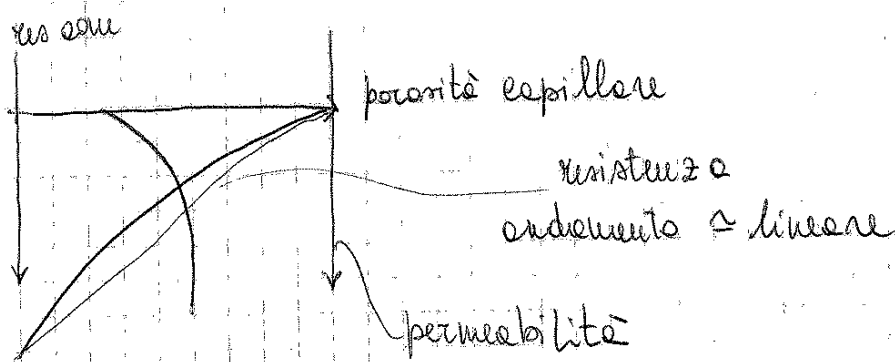 res
porosità capillare
resistenza
andamento ≃ lineare
permeabilità